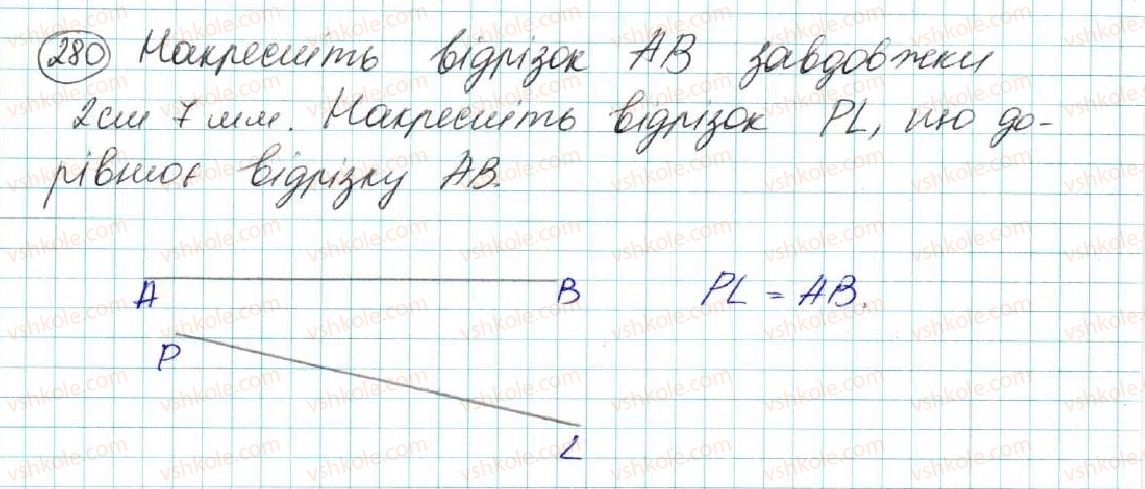 280 Накресліть відрізок AB завдовжки
2см 7 мм. Накресліть відрізок PL, що до-
рівнює відрізку AB.
A B PL = AB.
P
L
vshkole.com